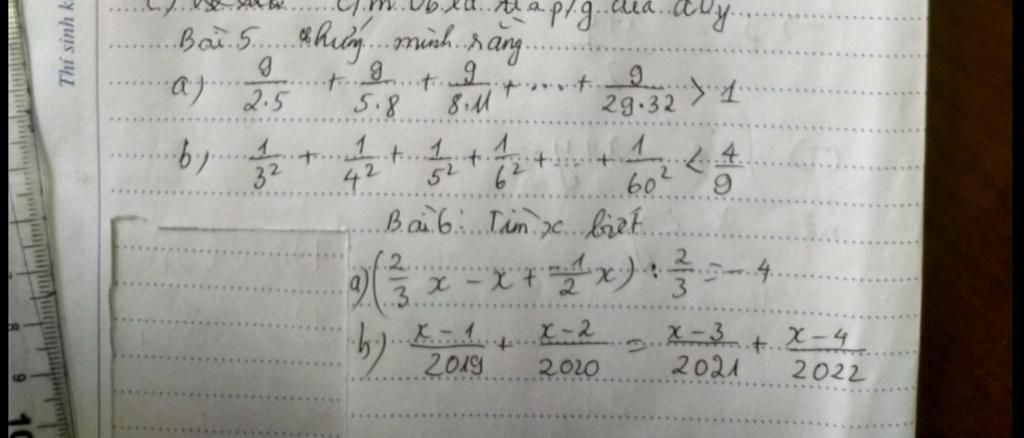 Thí sinh k
c/m Ob là tia p/g của aOy
Bài 5 Chứng minh rằng
a) 9/2.5 + 9/5.8 + 9/8.11 + .... + 9/29.32 > 1
b) 1/3² + 1/4² + 1/5² + 1/6² + ... + 1/60² < 4/9
Bài 6: Tìm x biết
a) (2/3 x - x + -1/2 x) : 2/3 = - 4
b) x-1/2019 + x-2/2020 = x-3/2021 + x-4/2022
8
9
10